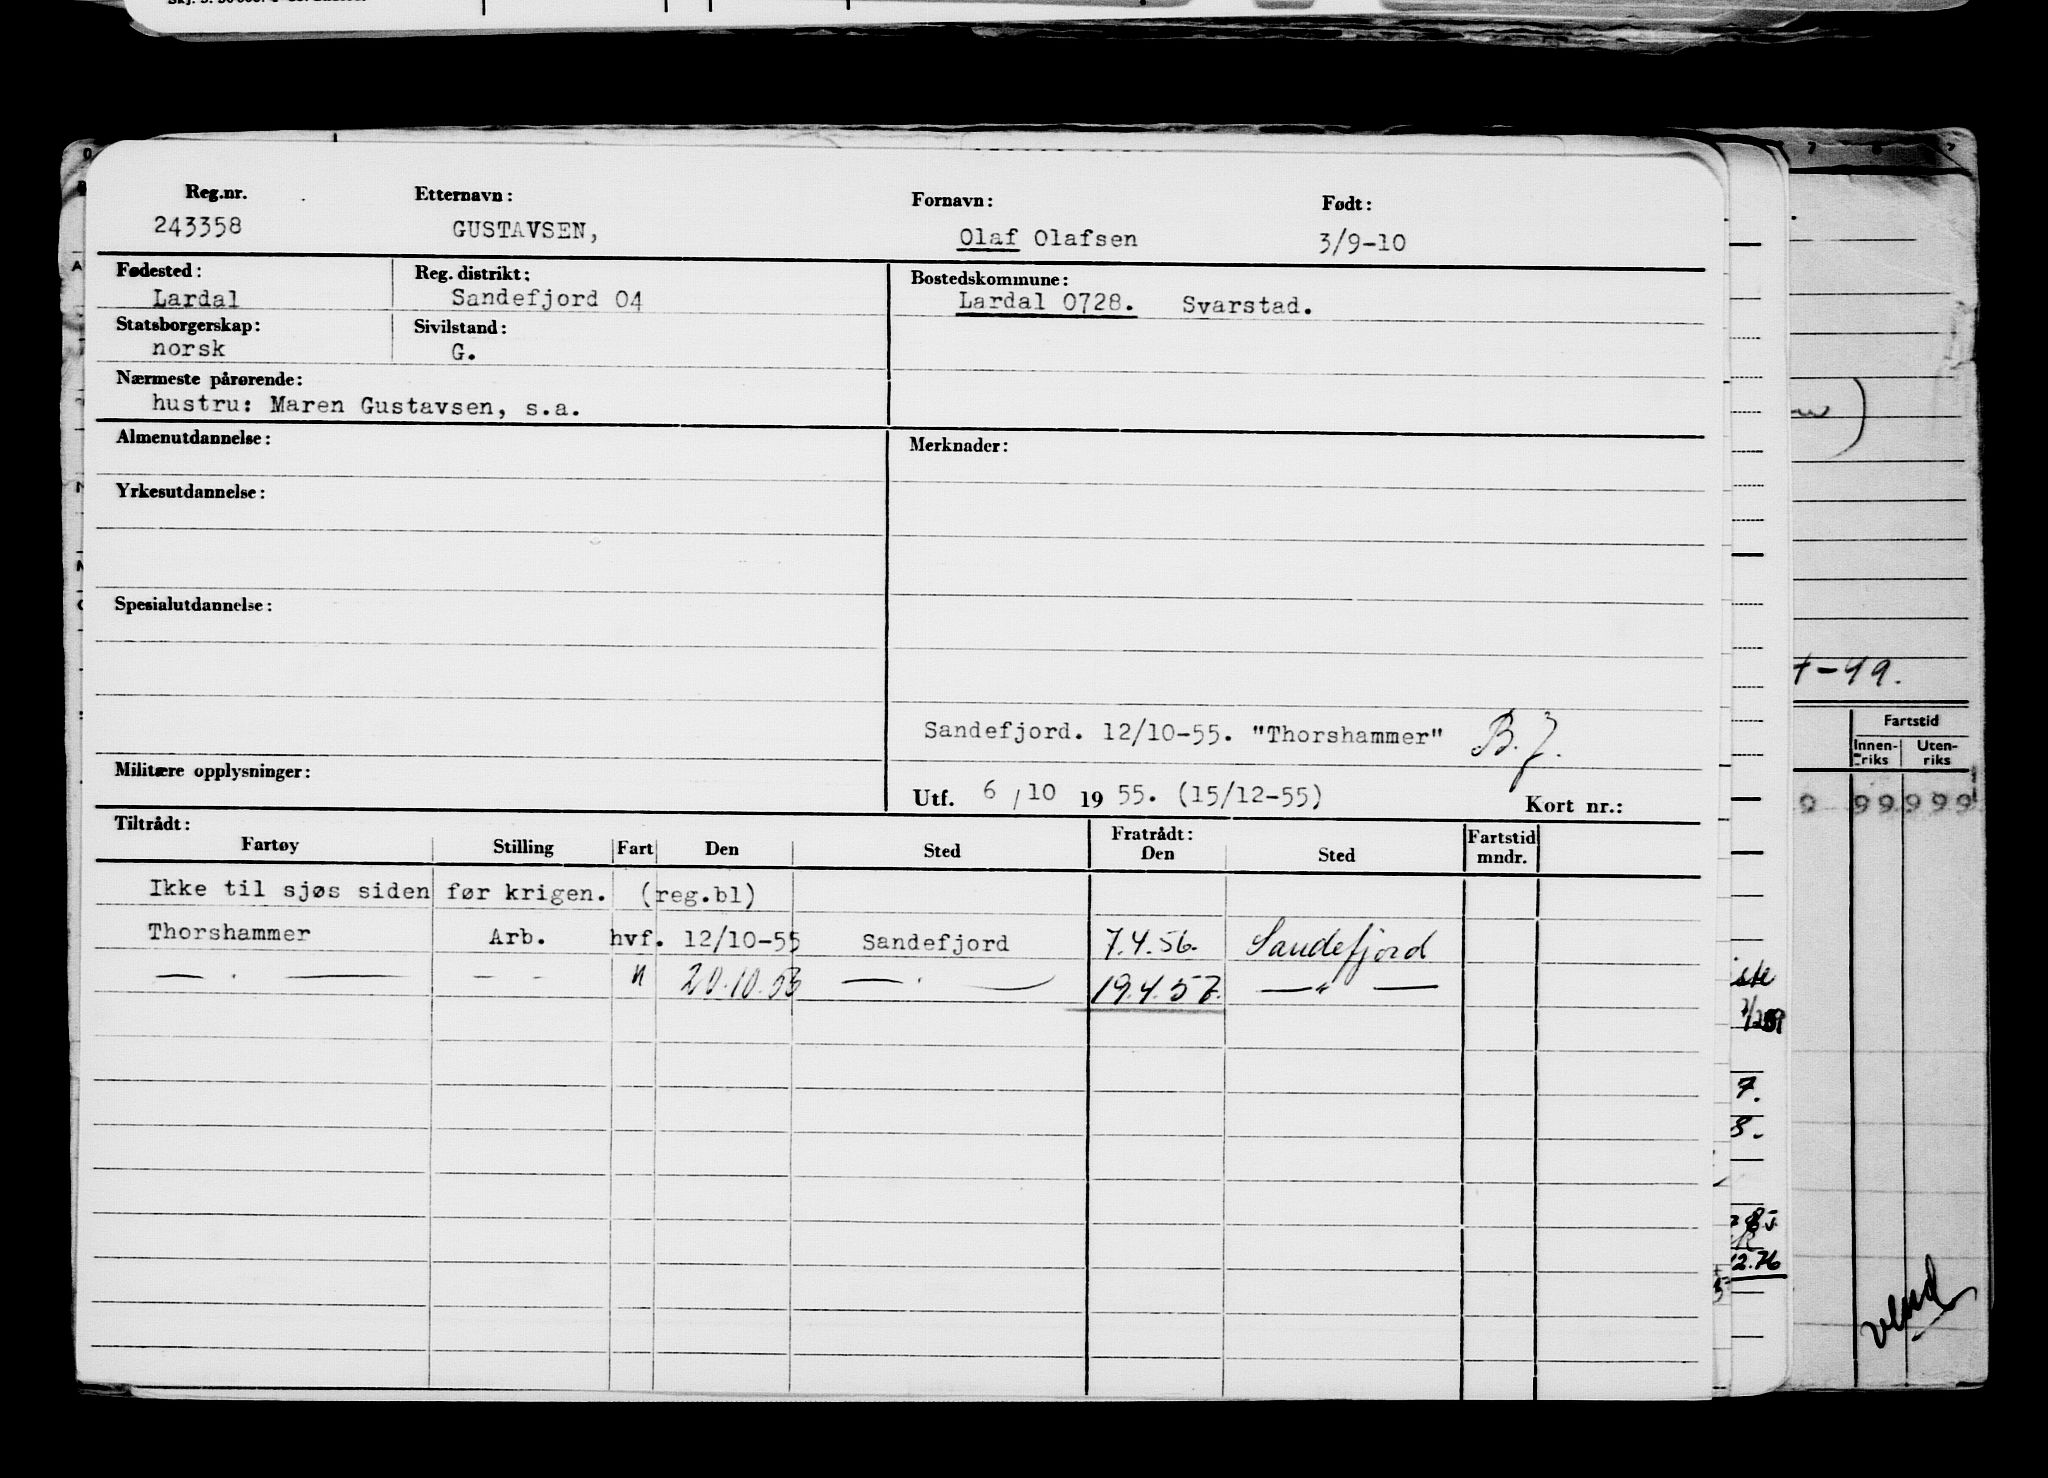 Reg.nr. Etternavn: Fornavn: Født:
243358 GUSTAVSEN, Olaf Olafsen 3/9-10
Fødested: Reg. distrikt: Bostedskommune:
Lardal Sandefjord 04 Lardal 0728. Svarstad.
Statsborgerskap: Sivilstand:
norsk G.
Nærmeste pårørende:
hustru: Maren Gustavsen, s.a.
Almenutdannelse: Merknader:
Yrkesutdannelse:
Spesialutdannelse:
Sandefjord. 12/10-55. "Thorshammer" B.J.
Militære opplysninger:
Utf. 6/10 1955. (15/12-55) Kort nr.:
Tiltrådt: Fratrådt: Fartstid
Fartøy Stilling Fart Den Sted Den Sted mndr.
Ikke til sjøs siden før krigen. (reg.bl)
Thorshammer Arb. hvf. 12/10-55 Sandefjord 7.4.56. Sandefjord
— . — - - " 20.10.5 — . — 19.4.57. — " —
4-49.
Fartstid
Innen-riks Uten-riks
9 9 9 9 9 9
7.
8.
12.76
vend